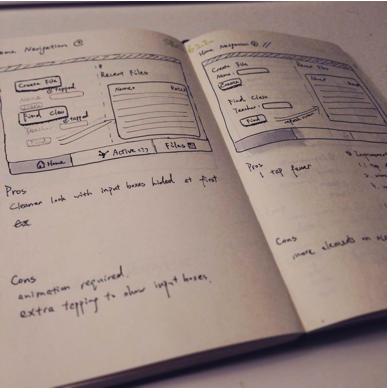 Home Navigation ①
Create File
Tapped
Name
Find Class
Tapped
Teacher
Find
Recent Files
Names
Home
Active
Files
Pros
Cleaner look with input boxes hided at first
Cons
animation required.
extra tapping to show input boxes.
Home Navigation ②
Create File
Name:
Create
Find Class
Teacher:
Find
Pros
1 tap fewer
Cons
more elements on